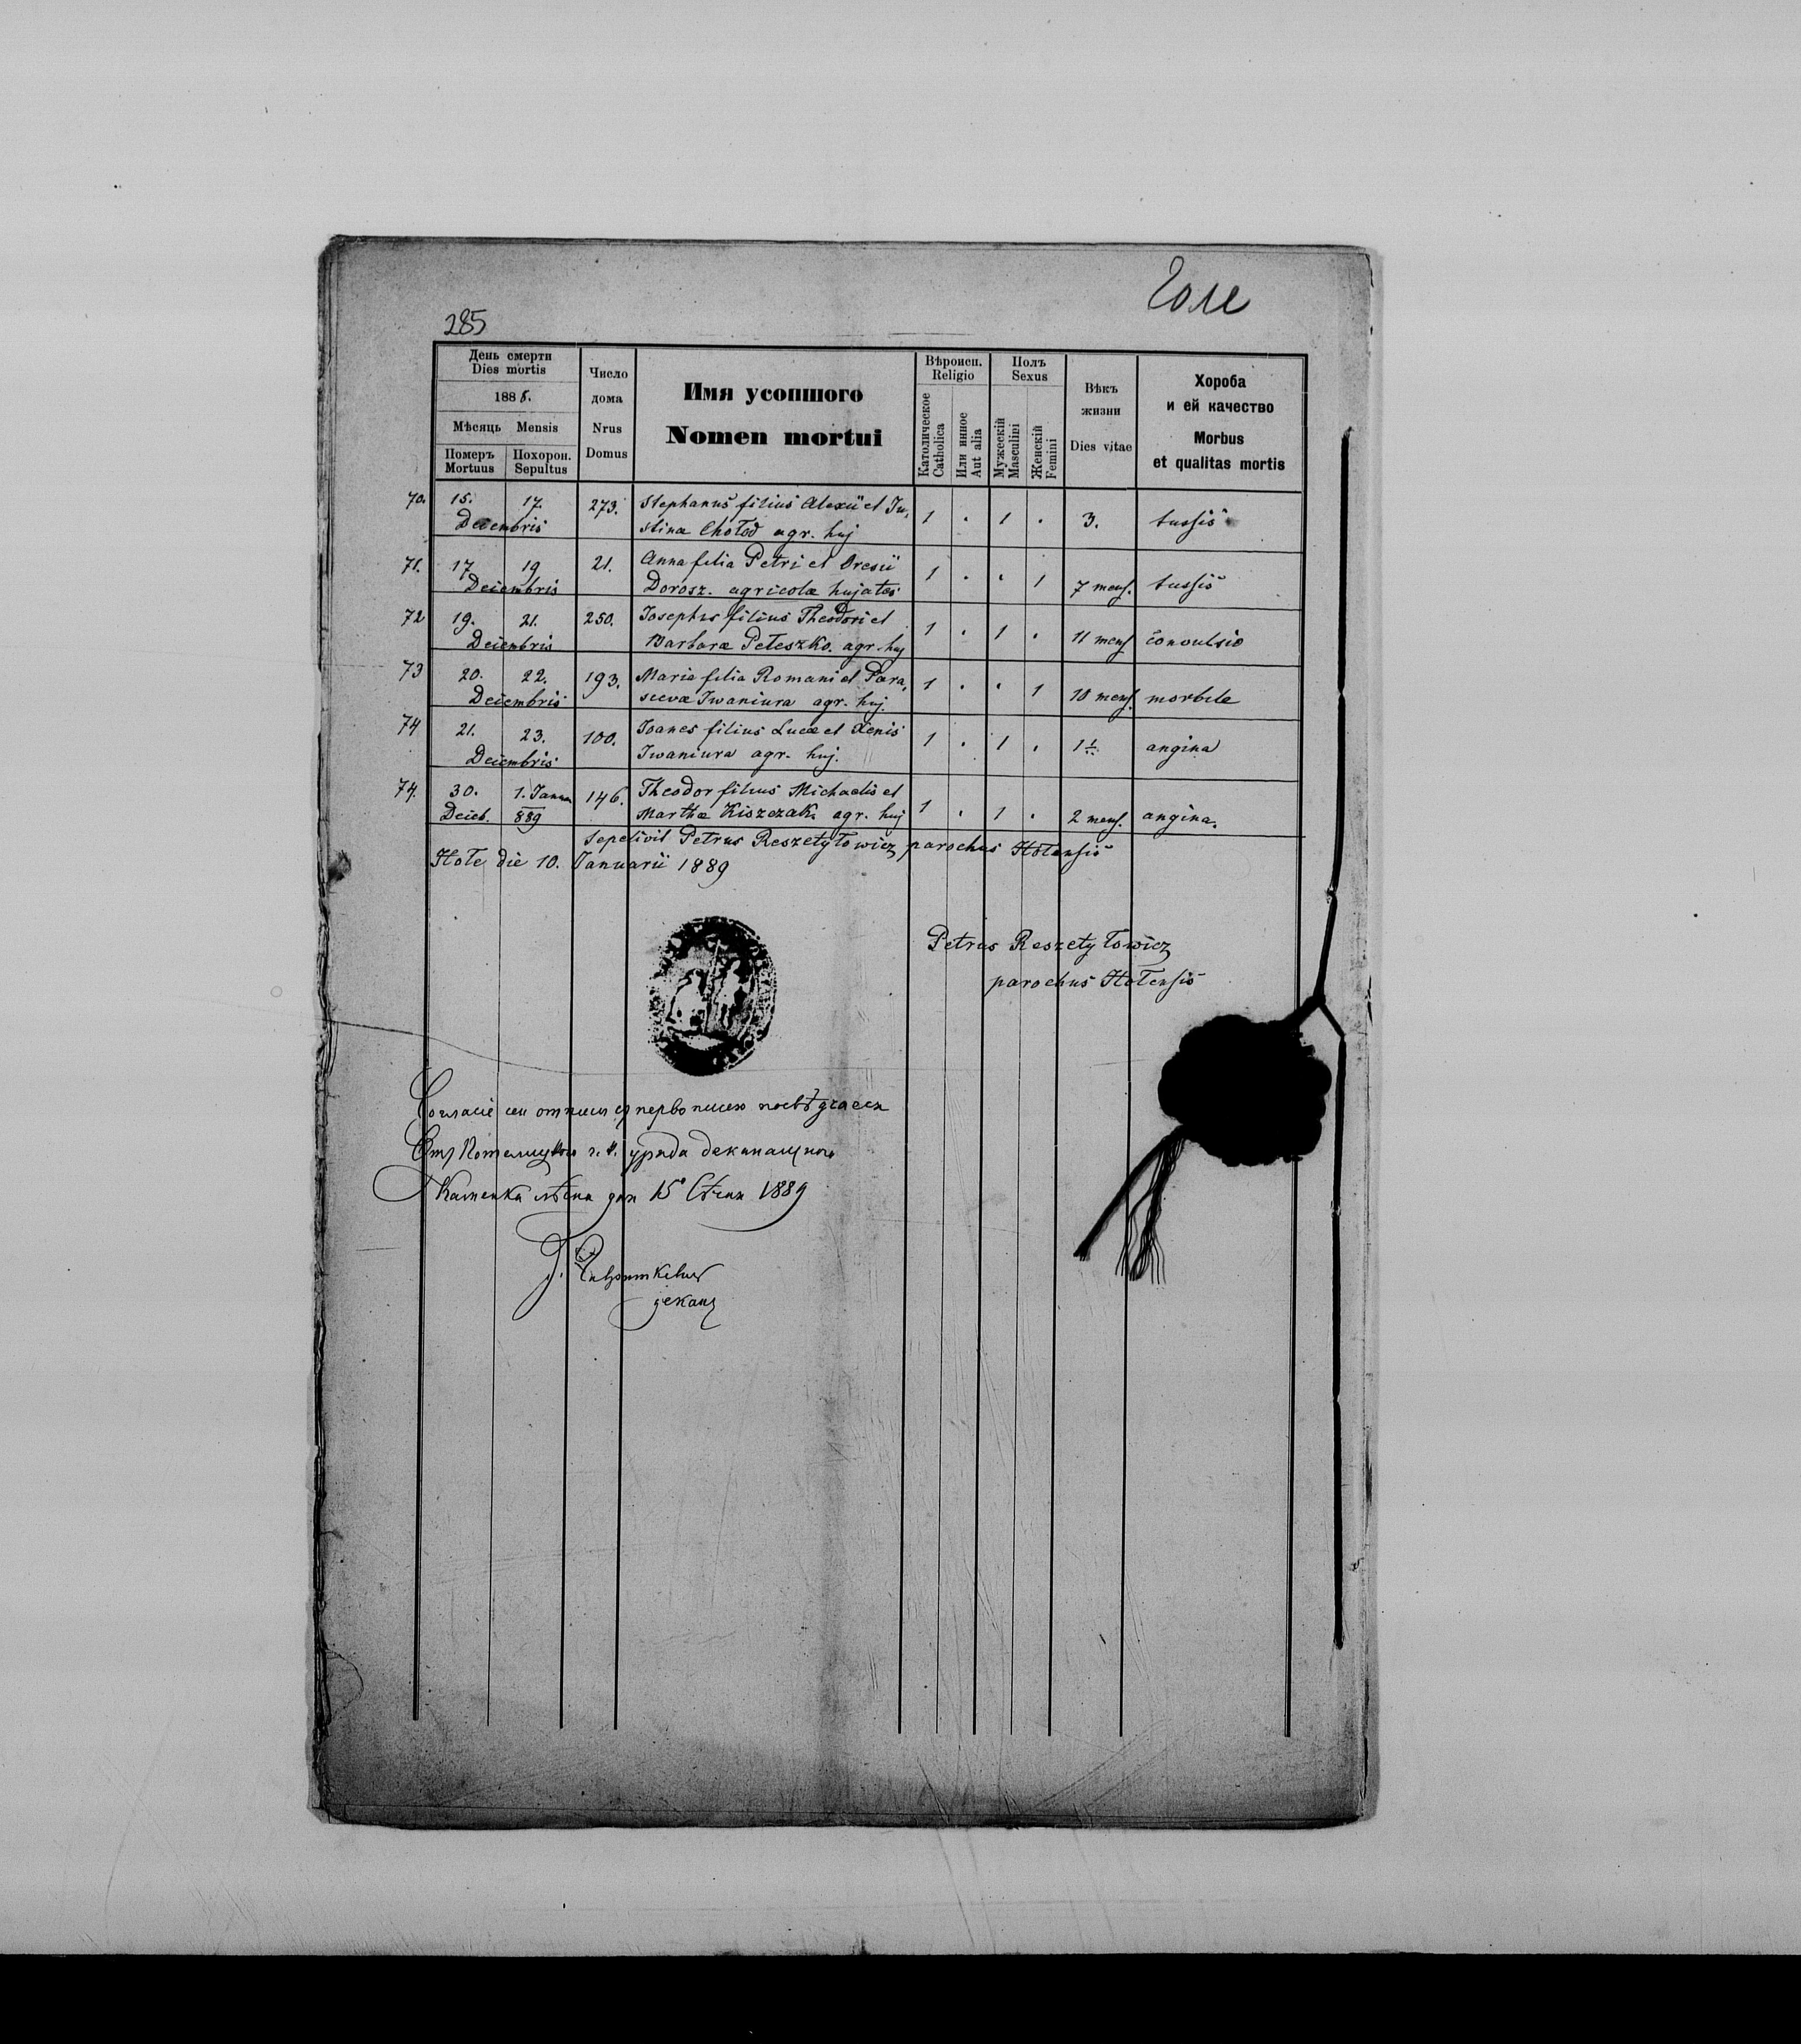 Голе
285
День смерти
Dies mortis
1888.
Мѣсяць Mensis
Померъ
Mortuus
Похорон.
Sepultus
Число
дома
Nrus
Domus
Имя усопшого
Nomen mortui
Вѣроисп.
Religio
Католическое
Catholica
Или инное
Aut alia
Полъ
Sexus
Мужескій
Masculini
Женскій
Femini
Вѣкъ
жизни
Dies vitae
Хороба
и ей качество
Morbus
et qualitas mortis
70. 15. 17. 273. Stephanus filius Alexii et Ju-
Decembris stinæ Chołod agr. huj 1 . 1 . 3. tussis
71. 17 19 21. Anna filia Petri et Oresii
Decembris Dorosz. agricolæ hujates 1 . . 1 7 mens. tussis
72 19. 21. 250. Josephus filius Theodori et
Decembris Barbaræ Peteszko. agr. huj 1 . 1 . 11 mens. convulsio
73 20. 22. 193. Maria filia Romani et Para,
Decembris scevæ Iwaniura agr. huj. 1 . . 1 10 mens. morbile
74 21. 23. 100. Joanes filius Lucæ et Xenis
Decembris Iwaniura agr. huj. 1 . 1 . angina
74. 30. 1. Januar 146. Theodor filius Michaelis et
Deceb. 889 Marthæ Kiszczak. agr. huj 1 . 1 . 2 mens. angina.
Sepelivit Petrus Reszetyłowicz parochus Hołensis
Hołe die 10. Januarii 1889
Petrus Reszetyłowicz
parochus Hołensis
первописею посвѣдчаеся
уряда деканального
Каменка лѣсна дня 15 Сѣчня 1889
деканъ